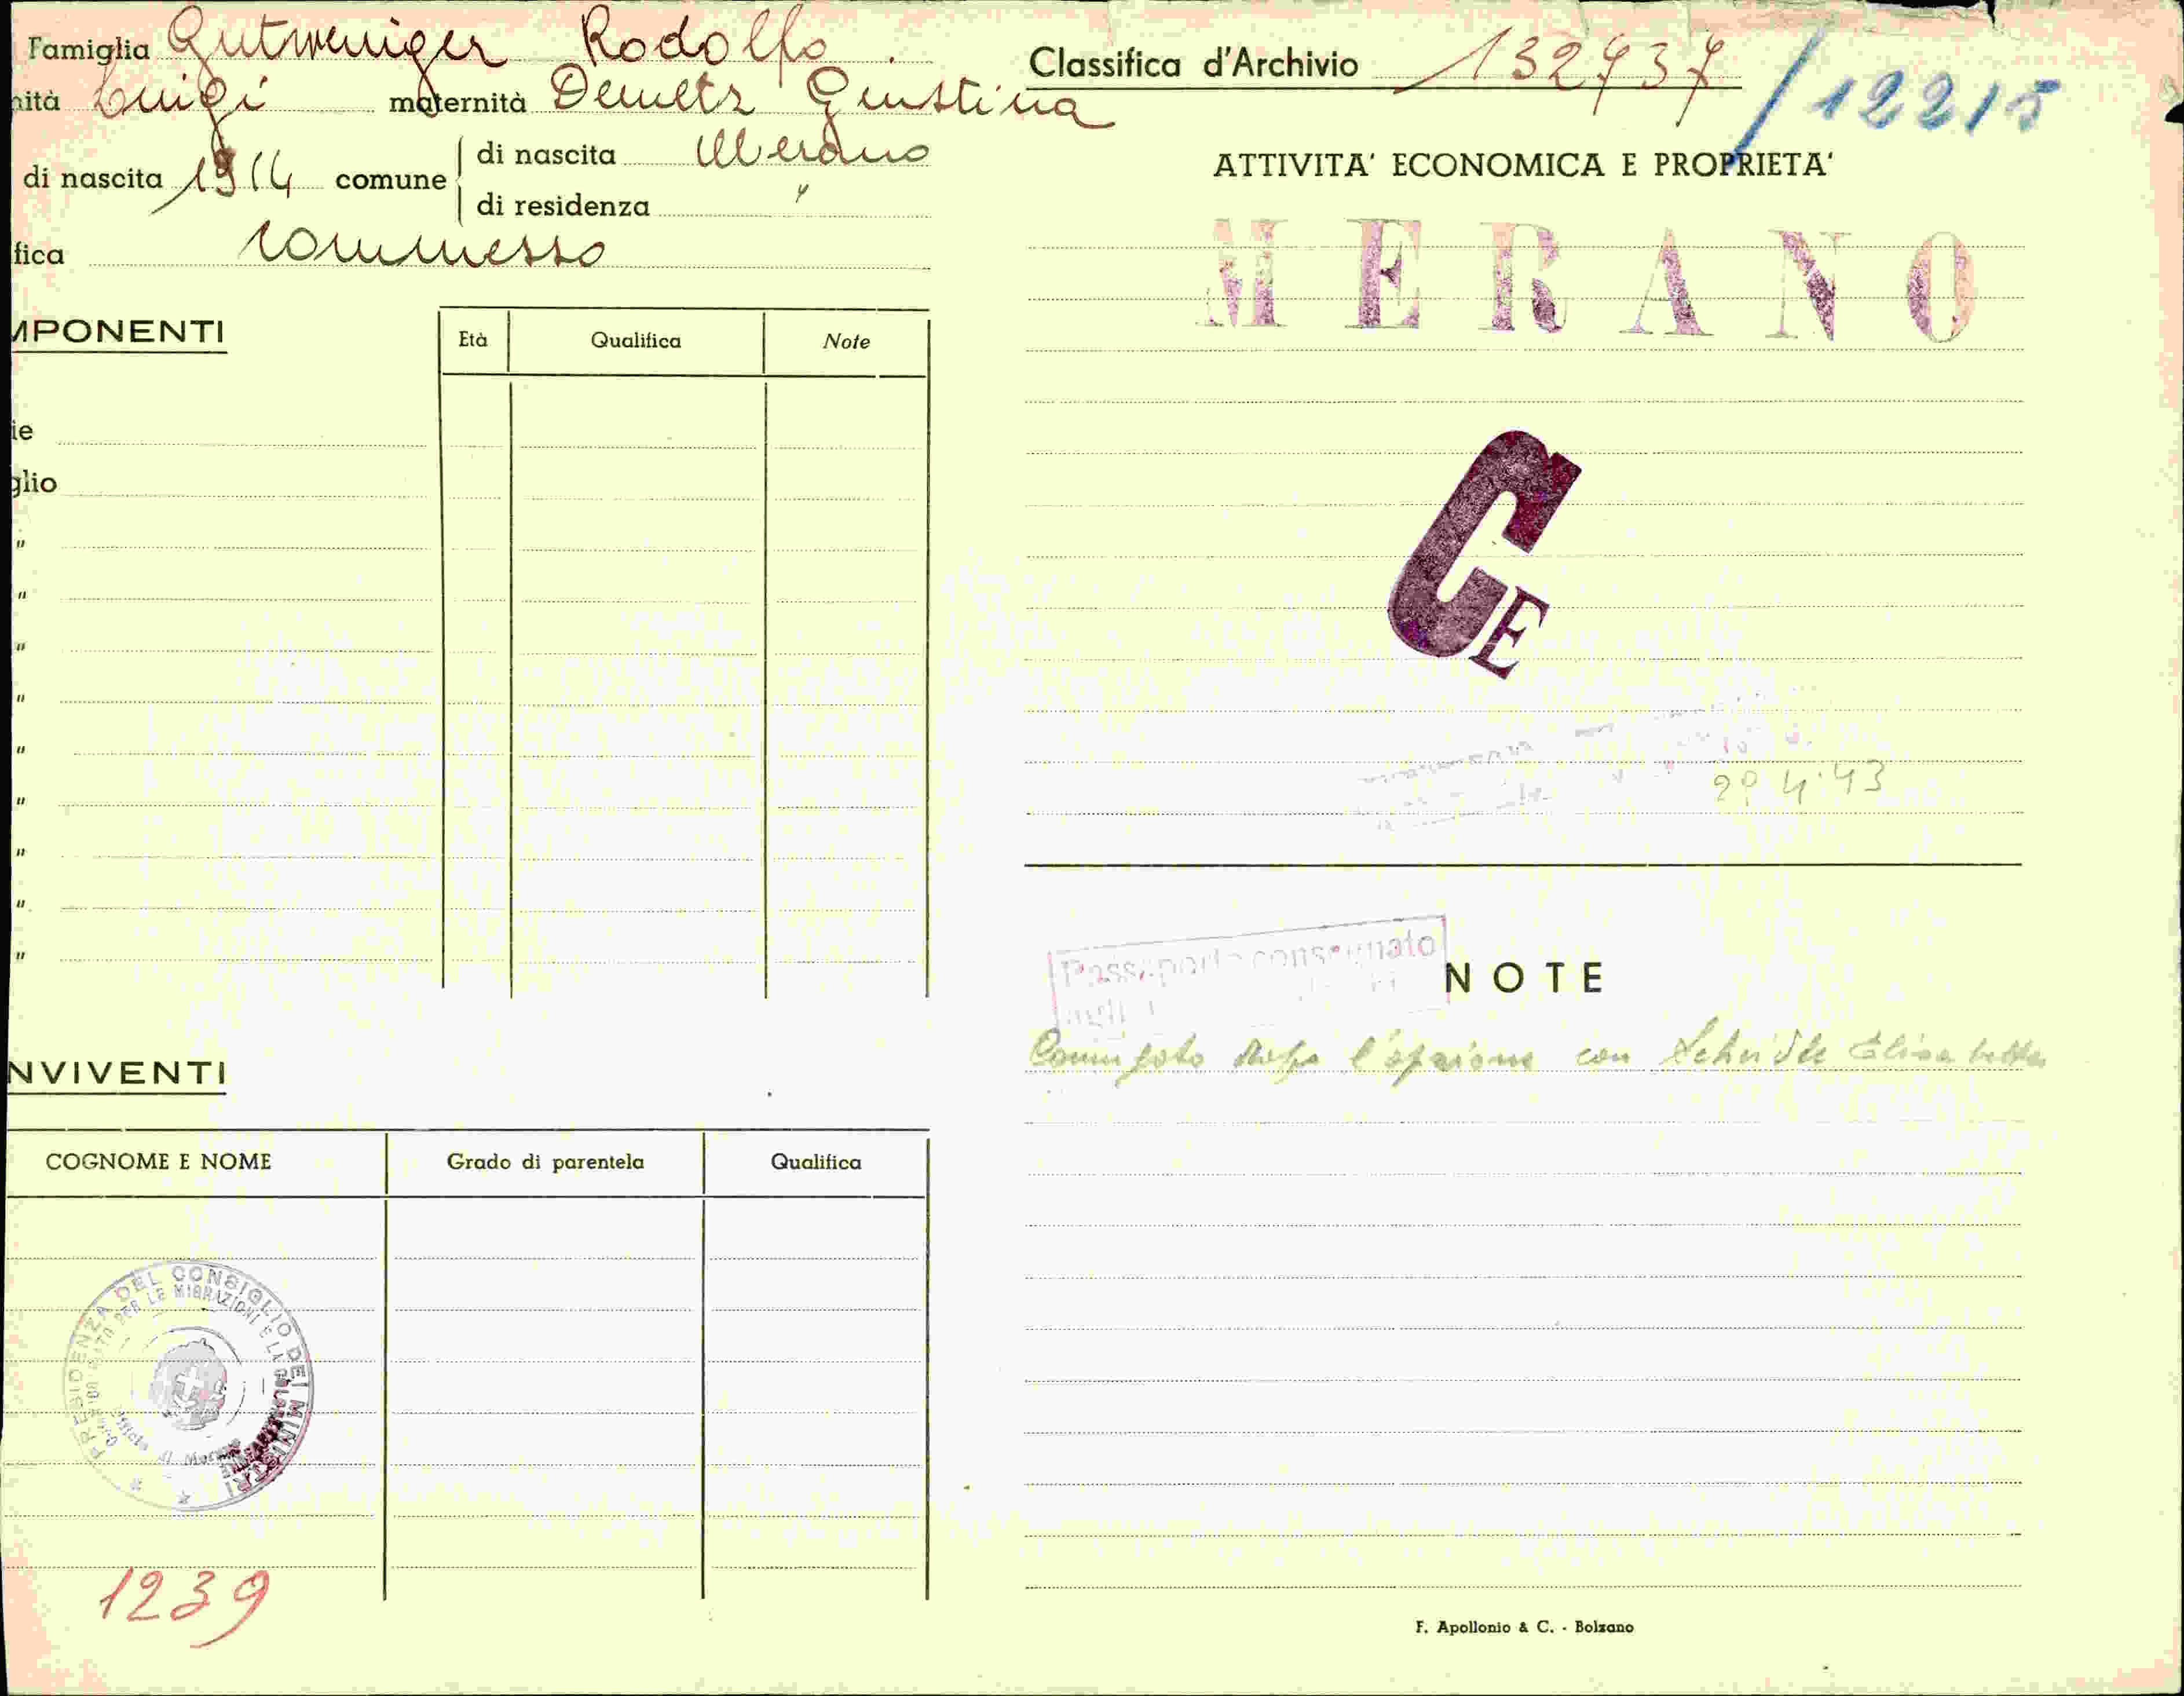 Famiglia Gutweniger Rodolfo
nità Luigi maternità Demetz Giustina
di nascita 1914 comune di nascita Merano
di residenza "
fica commesso
MPONENTI
Età Qualifica Note
ie
glio
"
"
"
"
"
"
"
"
"
NVIVENTI
COGNOME E NOME Grado di parentela Qualifica
PRESIDENZA DEL CONSIGLIO DEI MINISTRI
PER LE MIGRAZIONI E LA
1239
Classifica d'Archivio 132737 / 12215
ATTIVITA' ECONOMICA E PROPRIETA'
MERANO
CE
4.43
Passaporto consegnato
NOTE
Coniugato dopo l'opzione con Elisabetta
F. Apollonio & C. - Bolzano